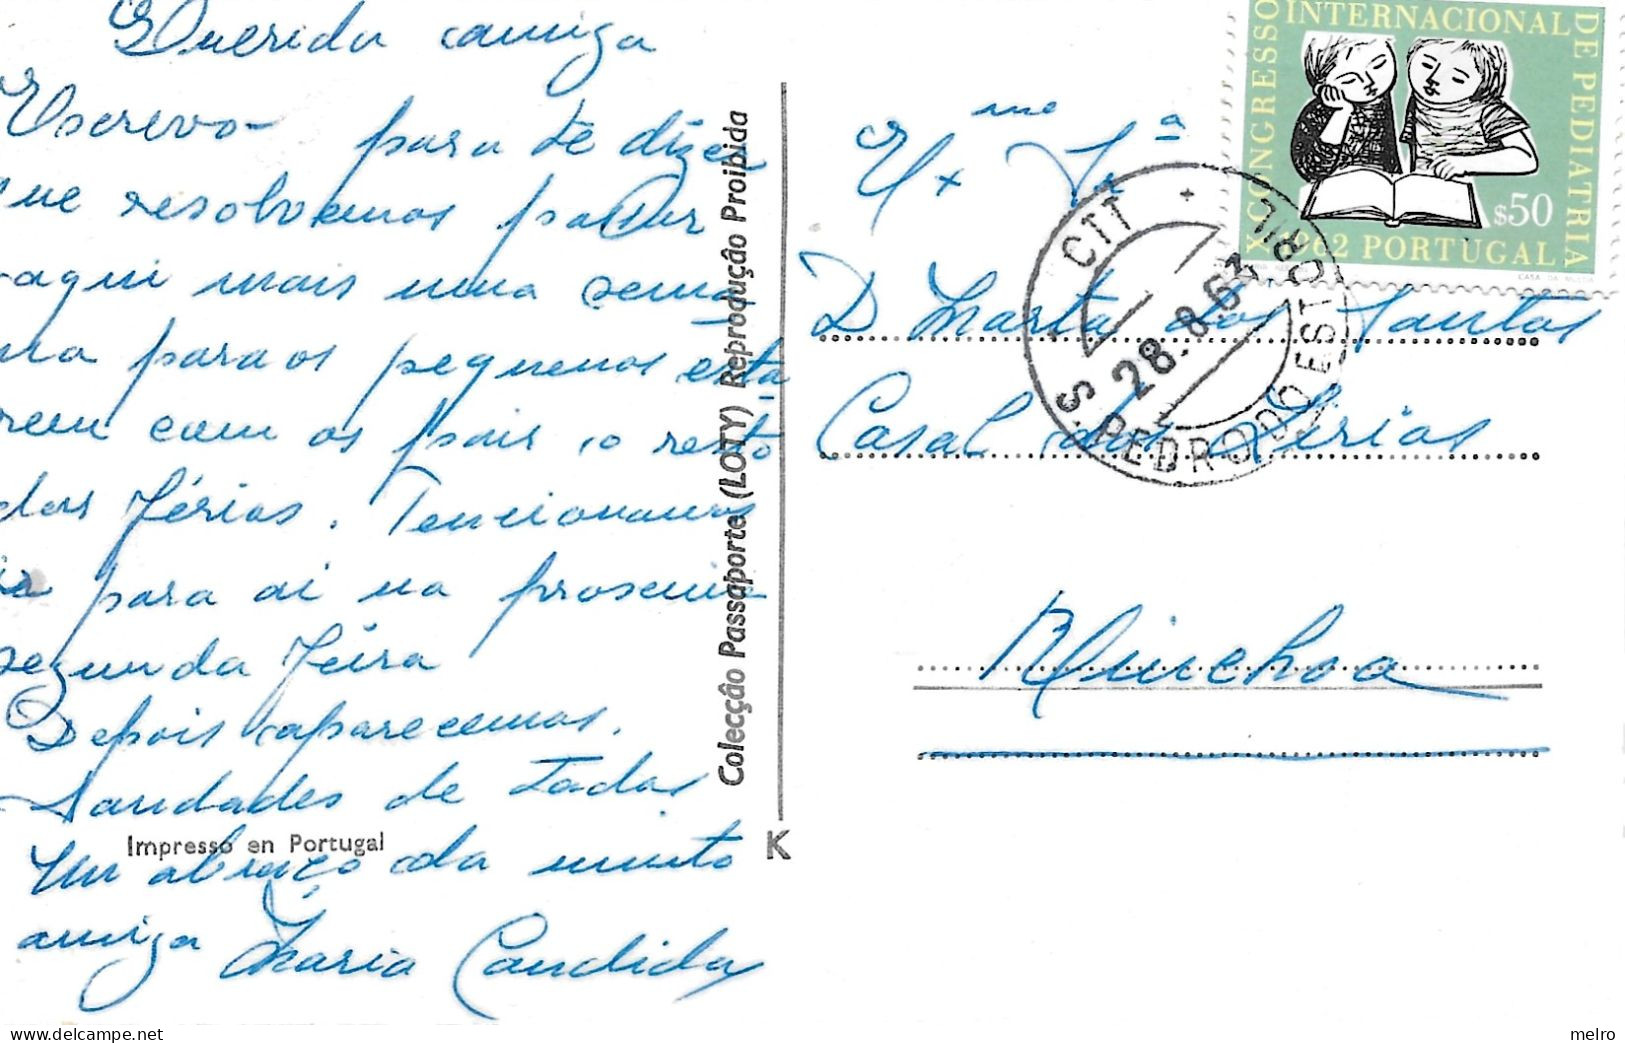 Querida amiga
Escrevo- para te dizer
que resolvemos passar
aqui mais uma sema
na para os pequenos esta
rem com os pais o resto
das férias. Tencionamos
ir para ai na prosenia
segunda feira
Depois aparecemos.
Saudades de todos
Um abraço da muito
amiga Maria Candida
Impresso en Portugal
Colecção Passaporte (LOTY) Reprodução Proibida
K
X CONGRESSO INTERNACIONAL DE PEDIATRIA
$50
1962 PORTUGAL
CASA DA MOEDA
CTT
28.8.63
S. PEDRO DO ESTORIL
Exme Srª
D. Marta dos Santos
Casal das
Minchoa
melro